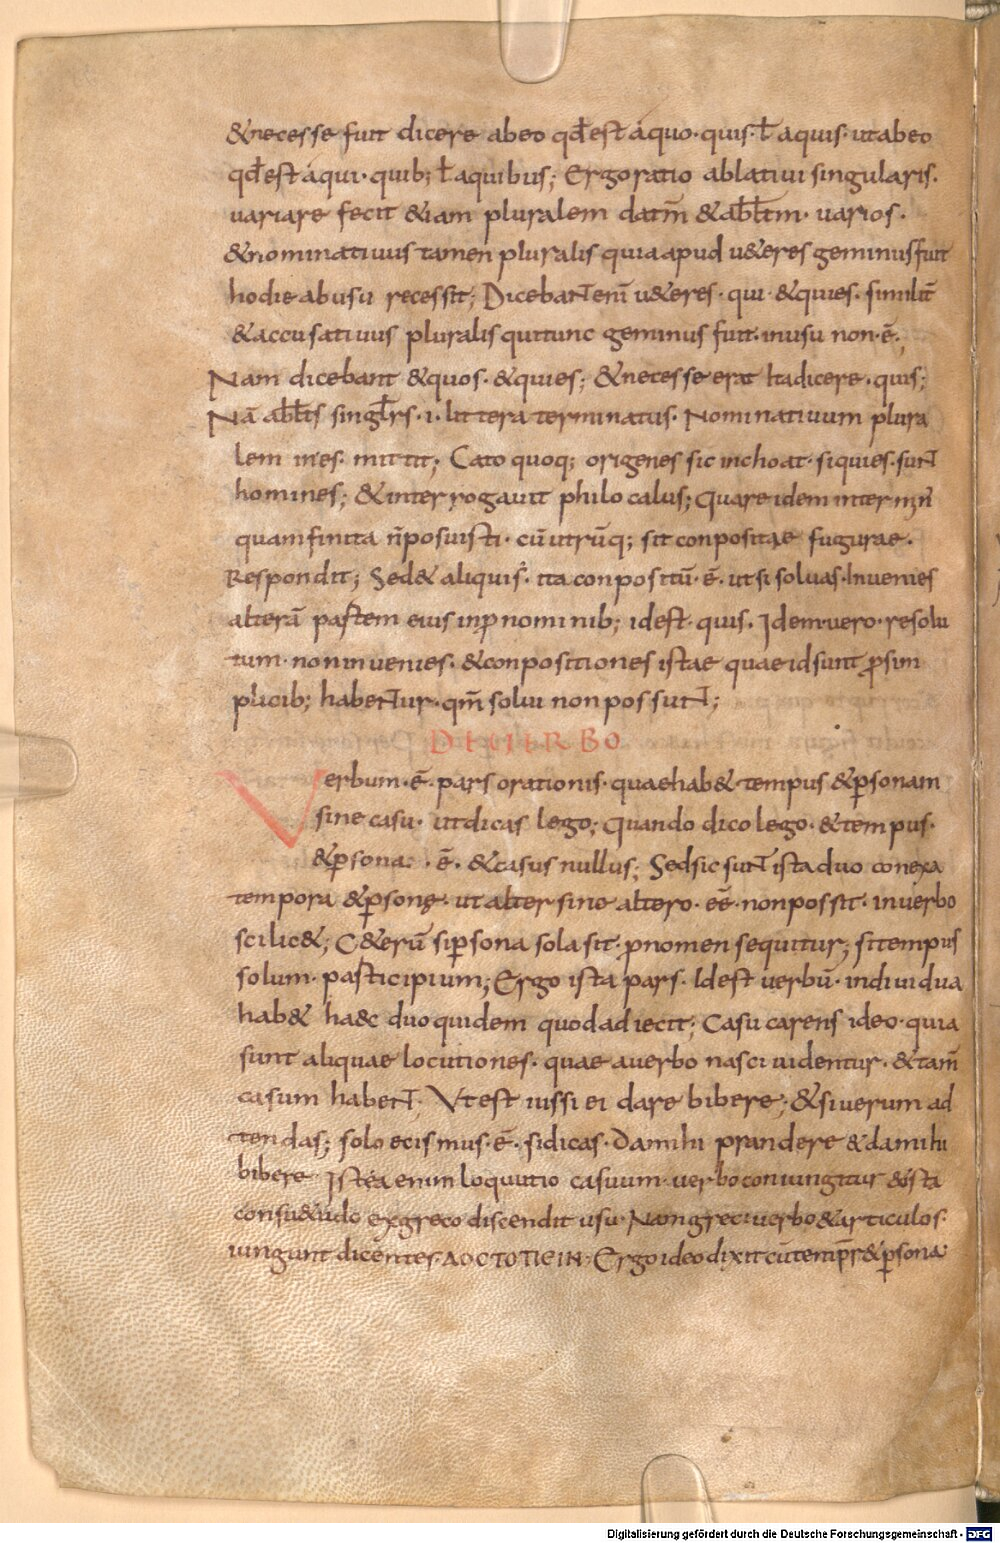 &necesse fuit dicere abeo qđest áquo·quis·ł aquis·utabeo
qđest áqui·quib; ł aquibus; Ergoratio ablatiui singularis·
uariare fecit &iam pluralem datm̄ &abłtm·uarios·
&nominatiuus tamen pluralis quiaapud u&eres geminusfuit
hodie abusu recessit; Dicebant enī u&eres·qui·&ques·similit̄
&accusatiuus pluralis quitunc geminus fuit·inusu non·ē·;
Nam dicebant &quos·&ques; &necesse erat Itadicere·quis;
Nā abłtis singłrs·i·littera terminatus·Nominatiuum plura
lem in es·mittit; Cato quoq; origenes sic inchoat·siques·sunt
homines; &interrogauit philocalus; Quare idem inter
quamfinita n̄posuisti·cū utrūq; sit conpositae fugurae·
Respondit; Sed& aliquis·ita conpositū·ē·utsi soluas·Inuenies
alterā partem eius inp̄nominib; idest·quis·Idem·uero·resolu
tum·noninuenies·&conpositiones istae quae idsunt p̄sim
plicib; habentur·qm̄ solui non possunt;
DEUERBO
Verbum·ē·pars orationis·quaehab&·tempus &p̱sonam
sine casu·utdicas lego; Quando dico lego·&tempus·
&p̱sona·ē·&casus nullus; Sedsic sunt ista duo conexa
tempora &p̱sonę·ut alter sine altero·eē·non possit·inuerbo
scilic&; C&erū sip̱sona sola sit·p̄nomen sequitur; sitempus
solum·participium; Ergo ista pars·Idest uerbū·indiuidua
hab& haec duo quidem quod adiecit; Casu carens ideo·quia
sunt aliquae locutiones·quae auerbo nasci uidentur·&tam̄
casum habent·Vt est iussi ei dare bibere; &siuerum ad
tendas; soloecismus·ē·sidicas·Damihi prandere &damihi
bibere·Istéa enim loquutio casuum·uerbo coniungitur &ista
consu&udo exgreco discendit usu·Nam greci uerbo&articulos·
iungunt dicentes·ΔΟCΤΟΠΕΙΝ·Ergo ideo dixit cūtemp̄r&p̱sona·
Digitalisierung gefördert durch die Deutsche Forschungsgemeinschaft - DFG